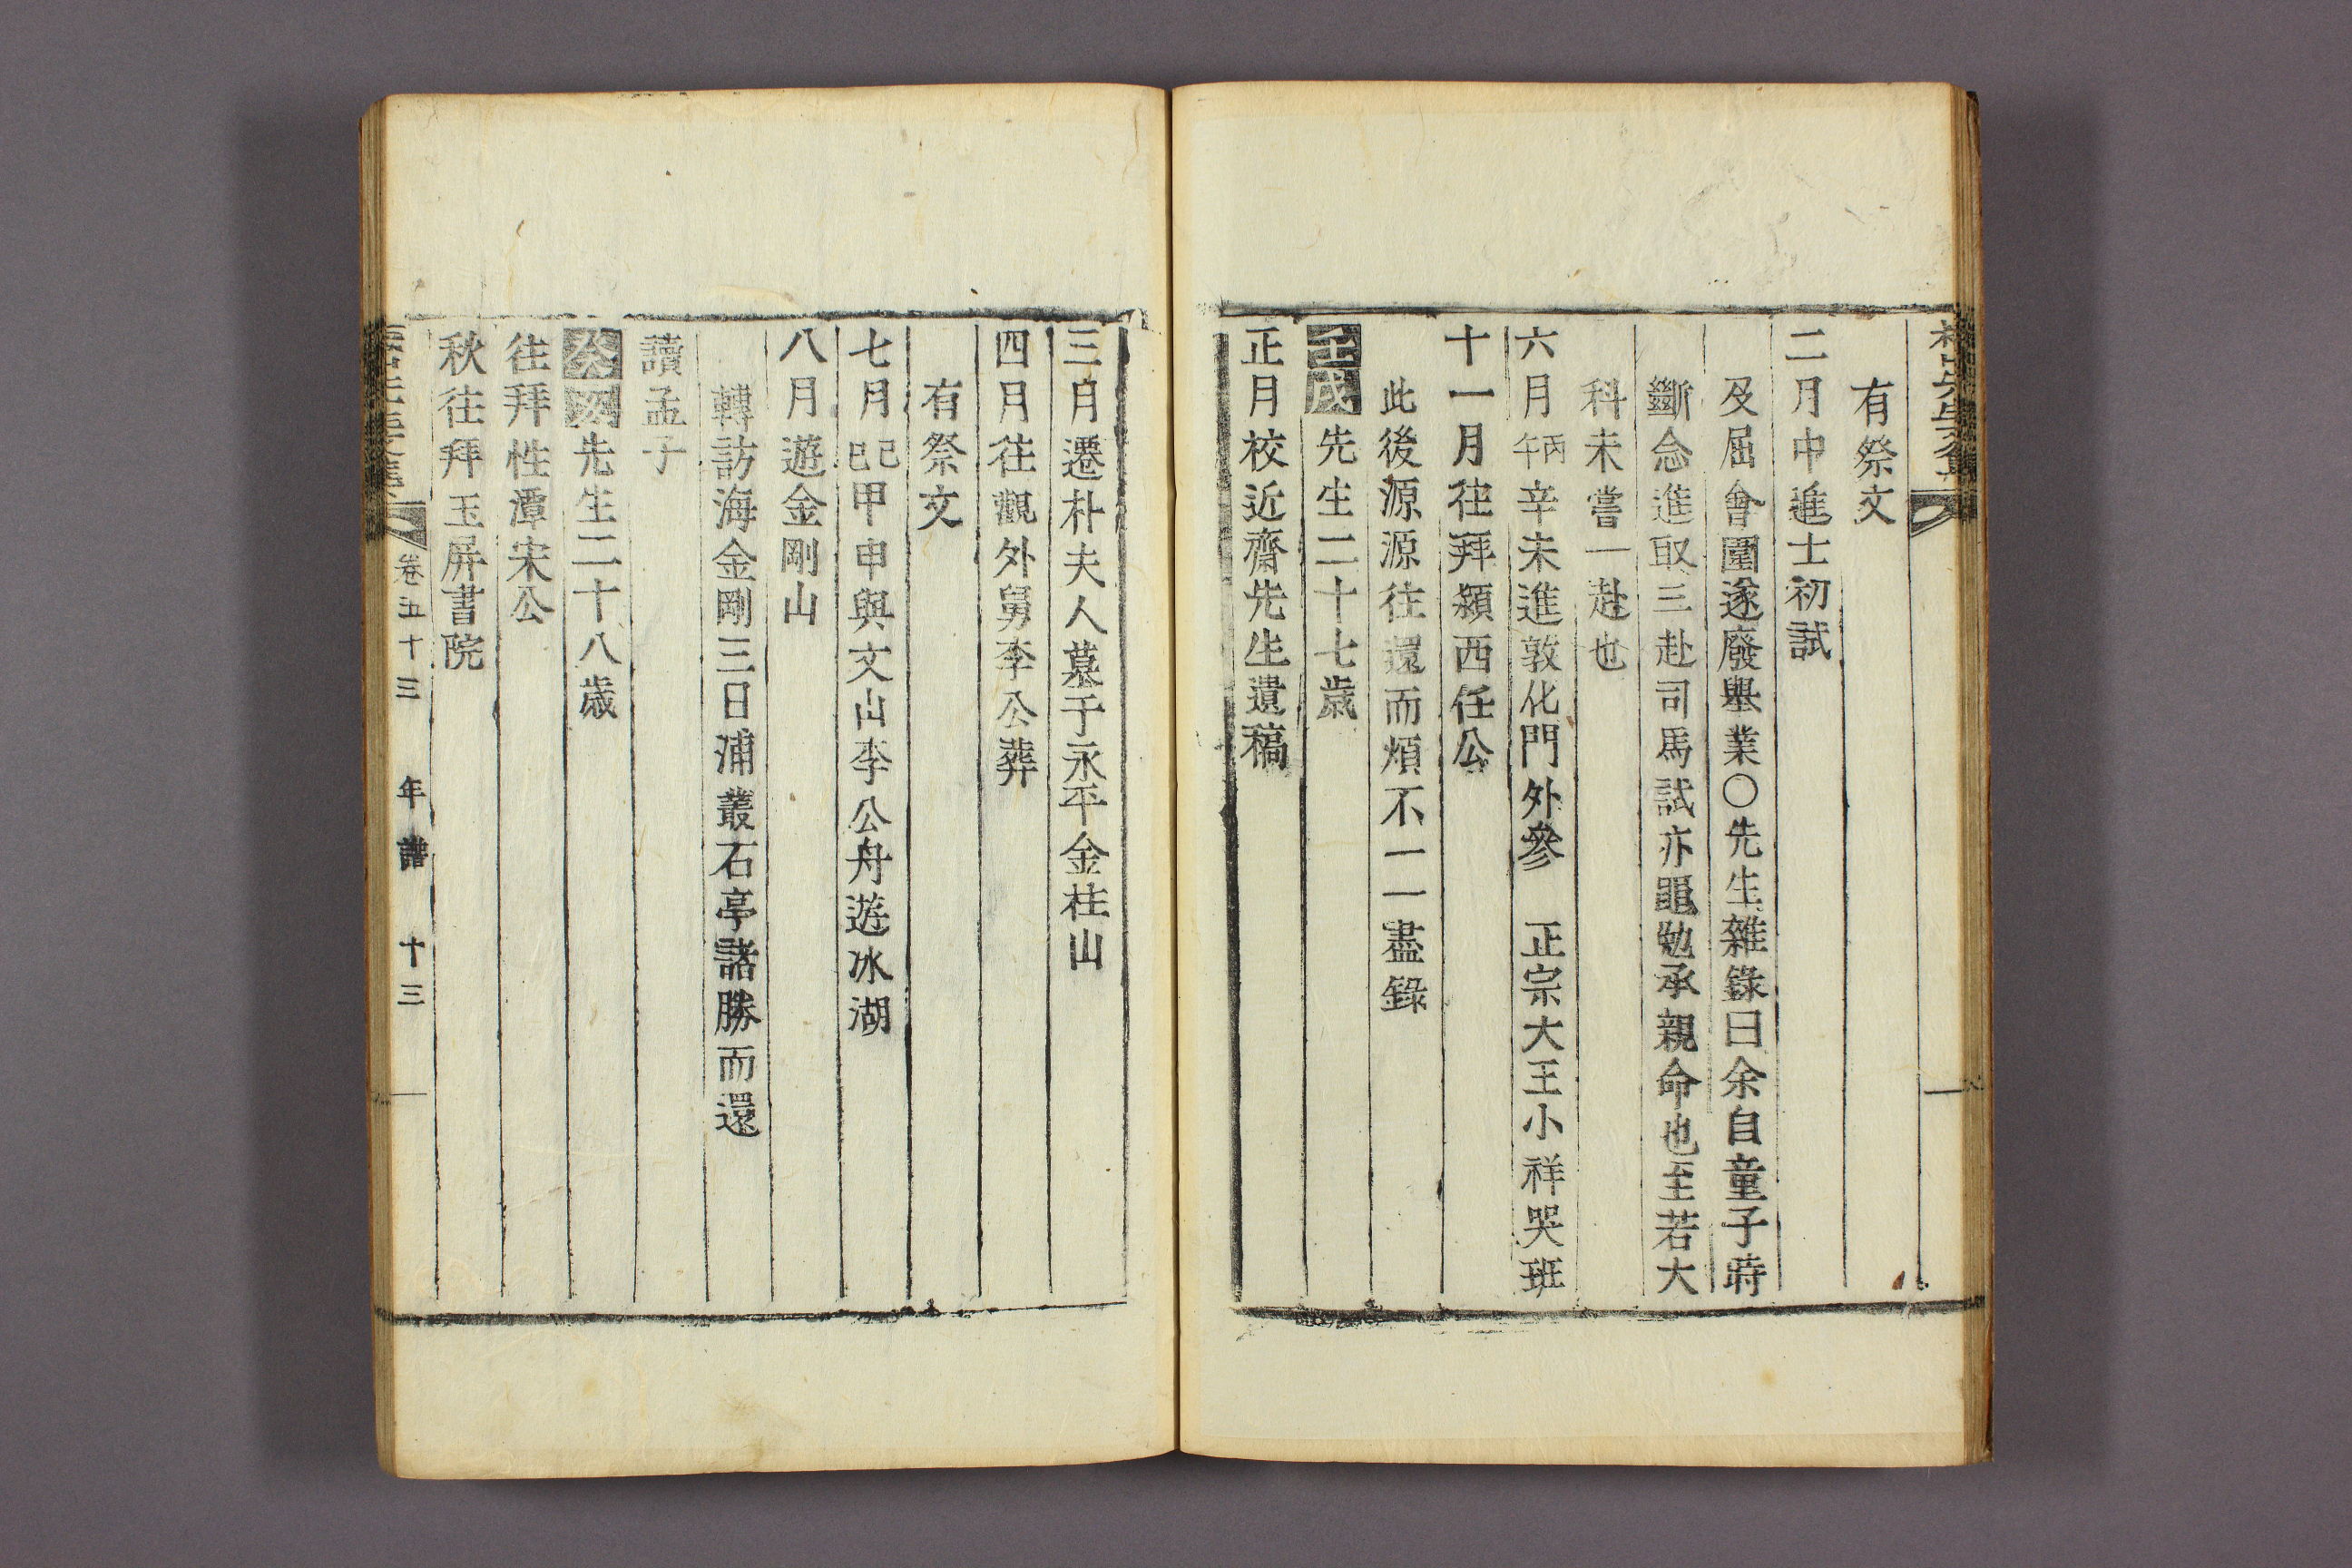 有祭文
二月中進士初試
及屈會圍遂廢擧業○先生雜錄曰余自童子時
斷念進取三赴司馬試亦黽勉承親命也至若大
科未嘗一赴也
六月丙午辛未進敦化門外參 正宗大王小祥哭班
十一月往拜潁西任公
此後源源往還而煩不一一盡錄
壬戌先生二十七歲
正月校近齋先生遺稿
三月遷朴夫人墓于永平金柱山
四月往觀外舅李公葬
有祭文
七月己巳甲申與文山李公舟遊冰湖
八月遊金剛山
轉訪海金剛三日浦叢石亭諸勝而還
讀孟子
癸亥先生二十八歲
往拜性潭宋公
秋往拜玉屏書院
卷五十三 年譜 十三